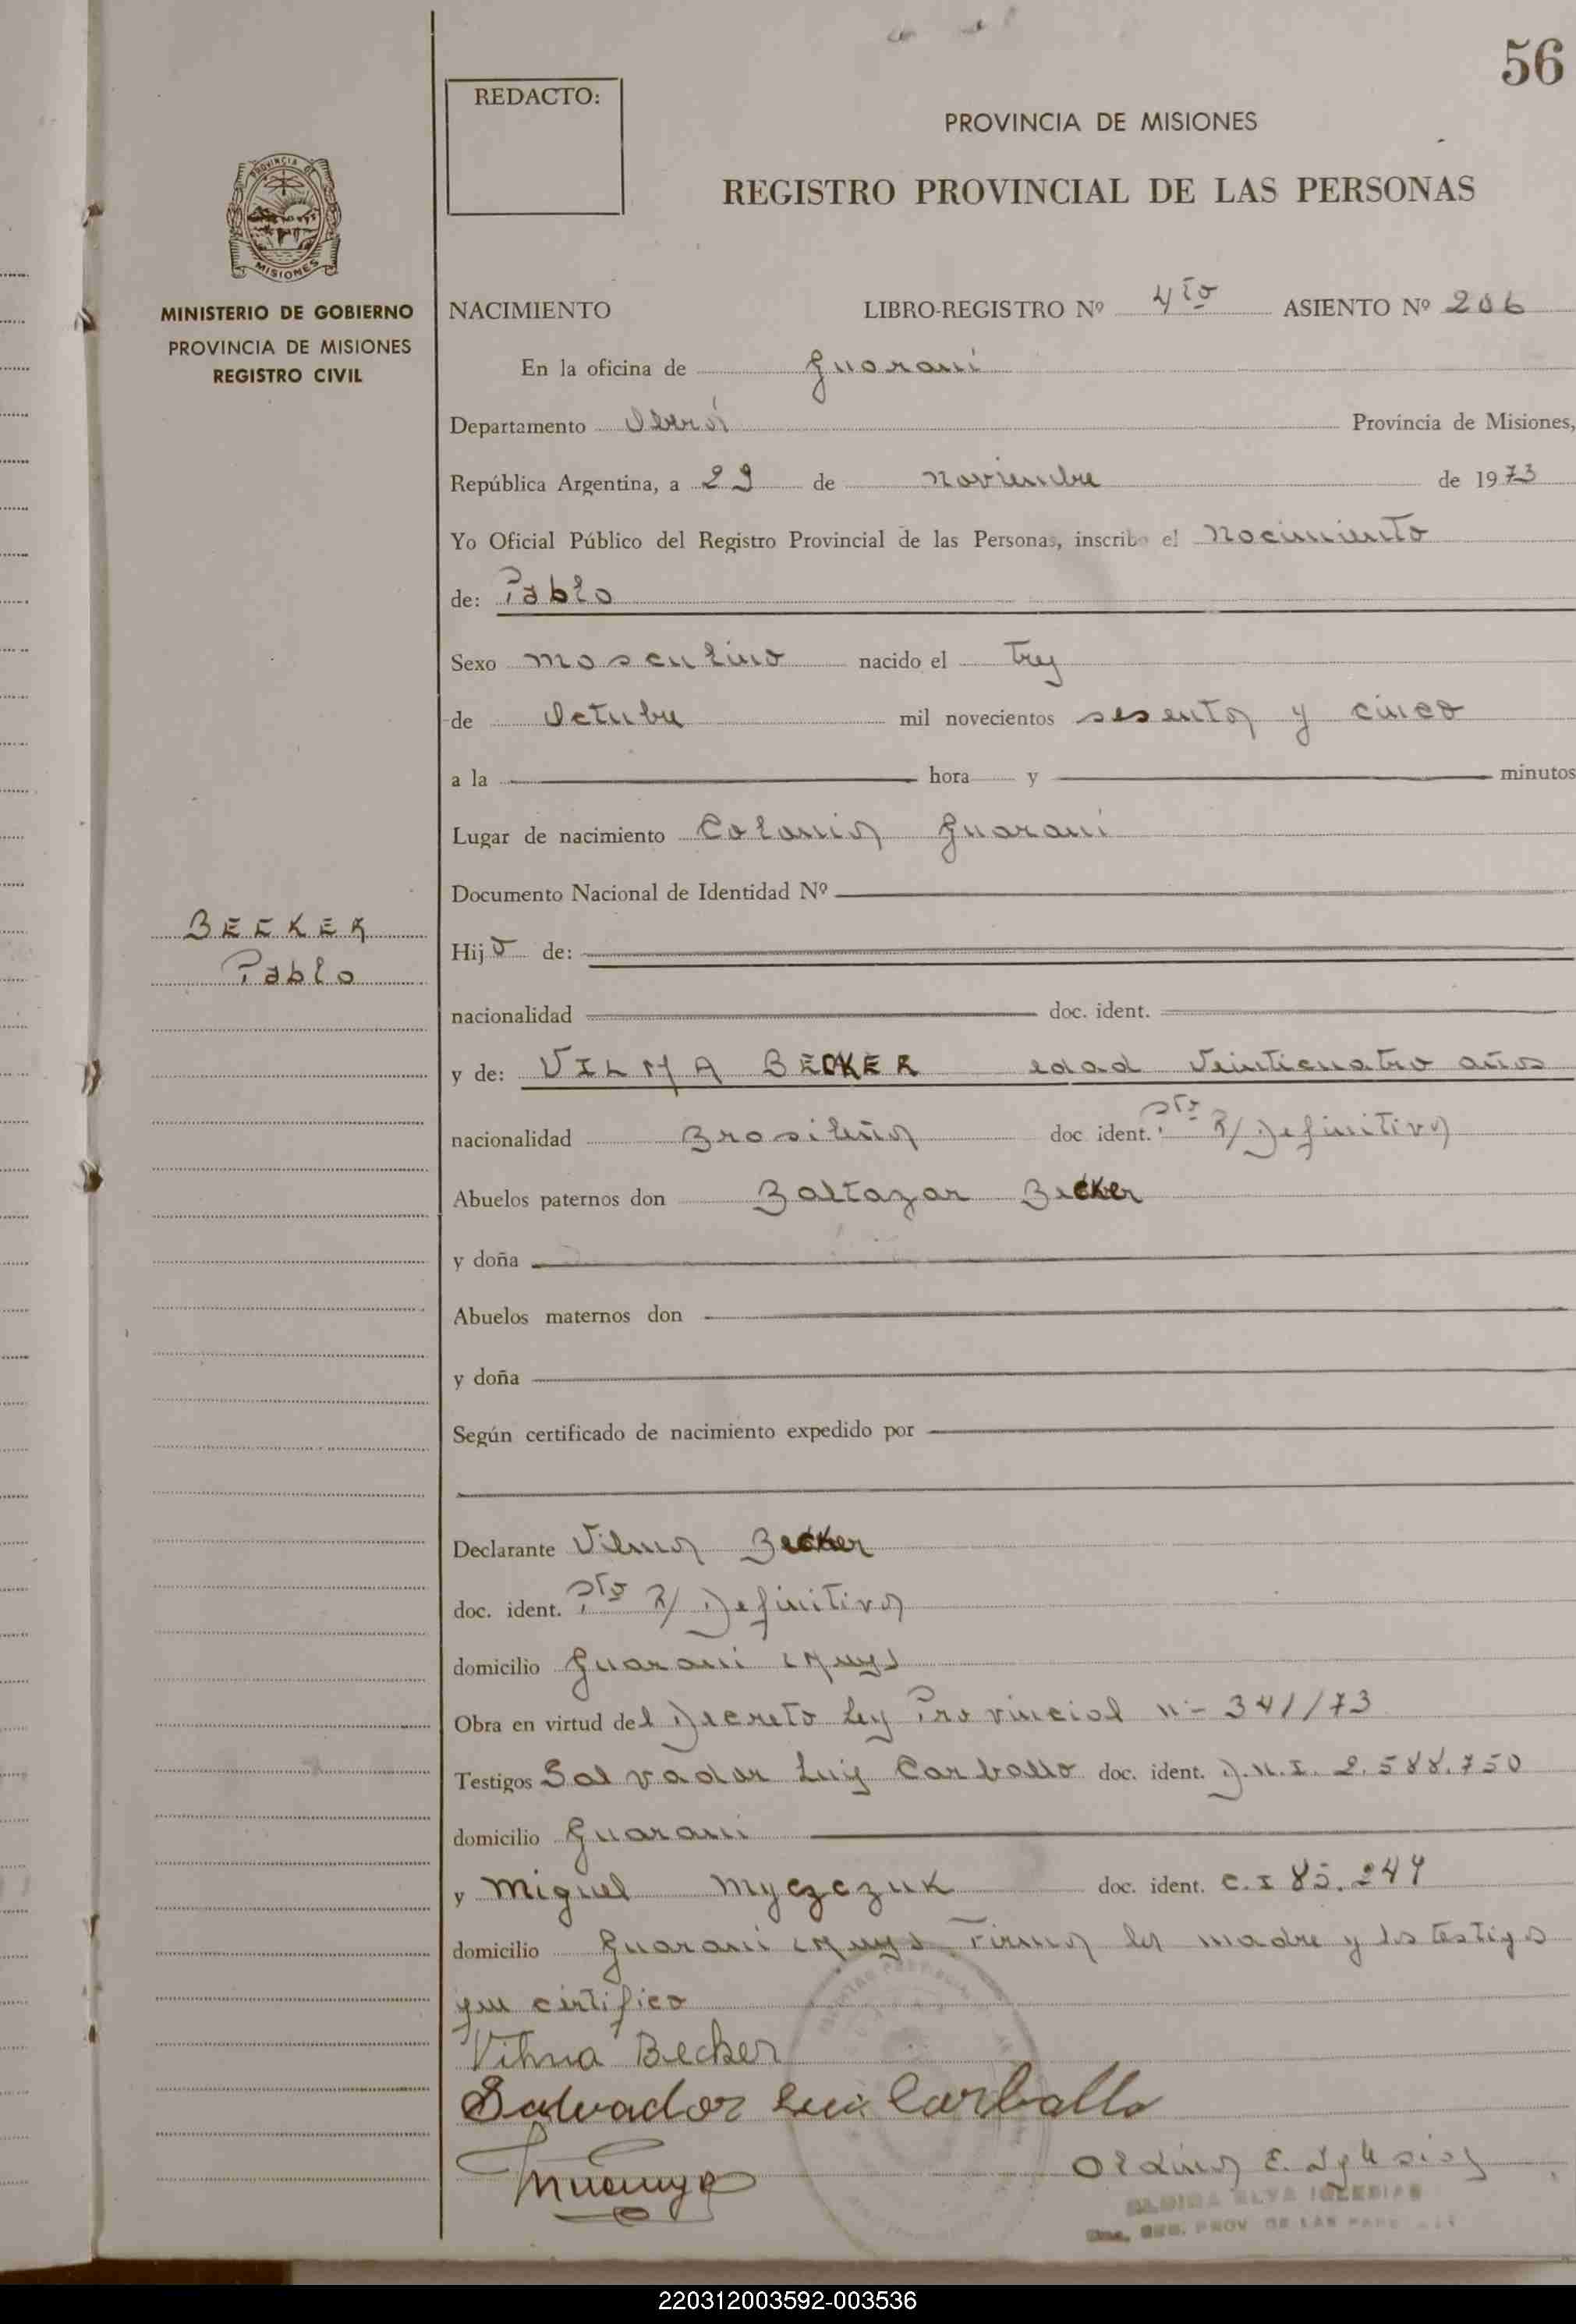 56
REDACTO:
PROVINCIA DE MISIONES
REGISTRO PROVINCIAL DE LAS PERSONAS
PROVINCIA DE
MISIONES
MINISTERIO DE GOBIERNO
PROVINCIA DE MISIONES
REGISTRO CIVIL
NACIMIENTO LIBRO-REGISTRO Nº 4to ASIENTO Nº 206
En la oficina de Guaraní
Departamento Oberá Provincia de Misiones,
República Argentina, a 29 de Noviembre de 1973
Yo Oficial Público del Registro Provincial de las Personas, inscribo el Nacimiento
de: Pablo
Sexo Masculino nacido el Tres
de Octubre mil novecientos sesenta y cinco
a la hora y minutos
Lugar de nacimiento Colonia Guaraní
Documento Nacional de Identidad Nº
BECKER
Pablo
Hijo de:
nacionalidad doc. ident.
y de: VILMA BECKER edad Veinticuatro años
nacionalidad Brasileña doc ident. Pto R/ Definitiva
Abuelos paternos don Baltazar Becker
y doña
Abuelos maternos don
y doña
Según certificado de nacimiento expedido por
Declarante Vilma Becker
doc. ident. Pto R/ Definitiva
domicilio Guaraní (Mnes)
Obra en virtud del Decreto Ley Provincial nº 341/73
Testigos Salvador Luis Carballo doc. ident. D.N.I. 2.588.750
domicilio Guaraní
y Miguel Myczczuk doc. ident. C.I 85.247
domicilio Guaraní (Mnes) Firma la madre y los testigos
que certifico
Vilma Becker
Salvador Luis Carballo
Oldina E. Iglesias
ELVA IGLESIAS
REG. PROV DE LAS
220312003592-003536